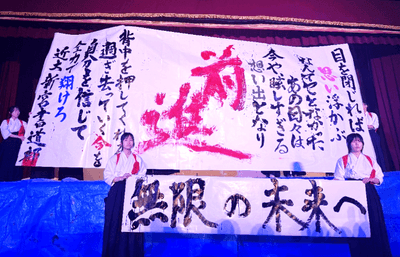 目を閉じれば
思い浮かぶ
なんてことなかった
あの日々は
今や眩しすぎる
想い出となり
前進
背中を押してくれ
過ぎ去っていく今を
自分を信じて
全力で翔けろ
近大新宮書道部
無限の未来へ